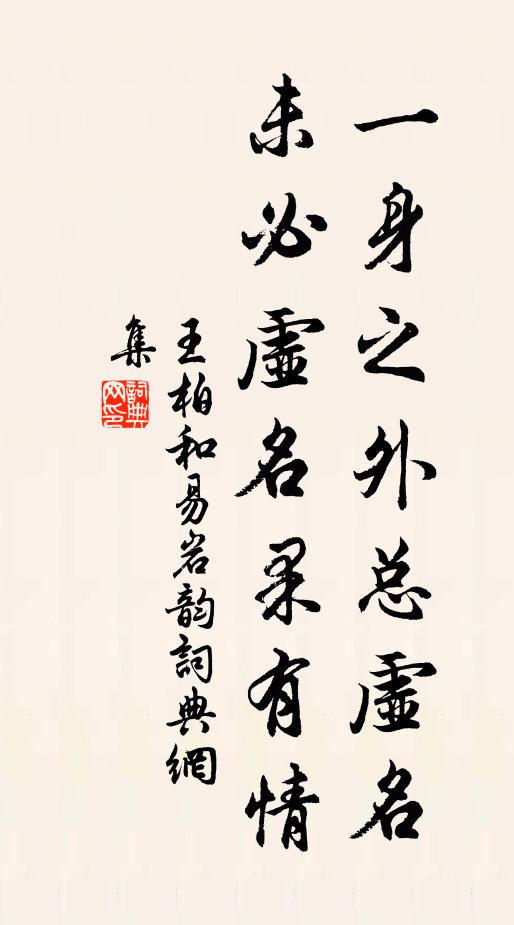 一身之外总虚名
未必虚名果有情
王柏和易岩韵詞典網
集
詞典網印